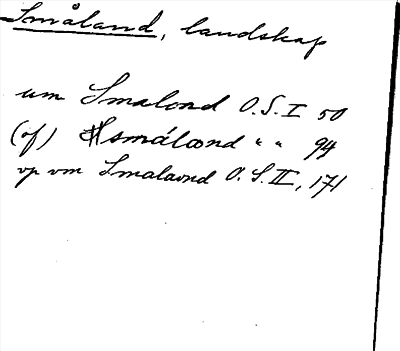 Småland, landskap
um Smalond O.S.I 50
(of) Smálœnd " " 94
vp vm Smalaond O.S.III, 171